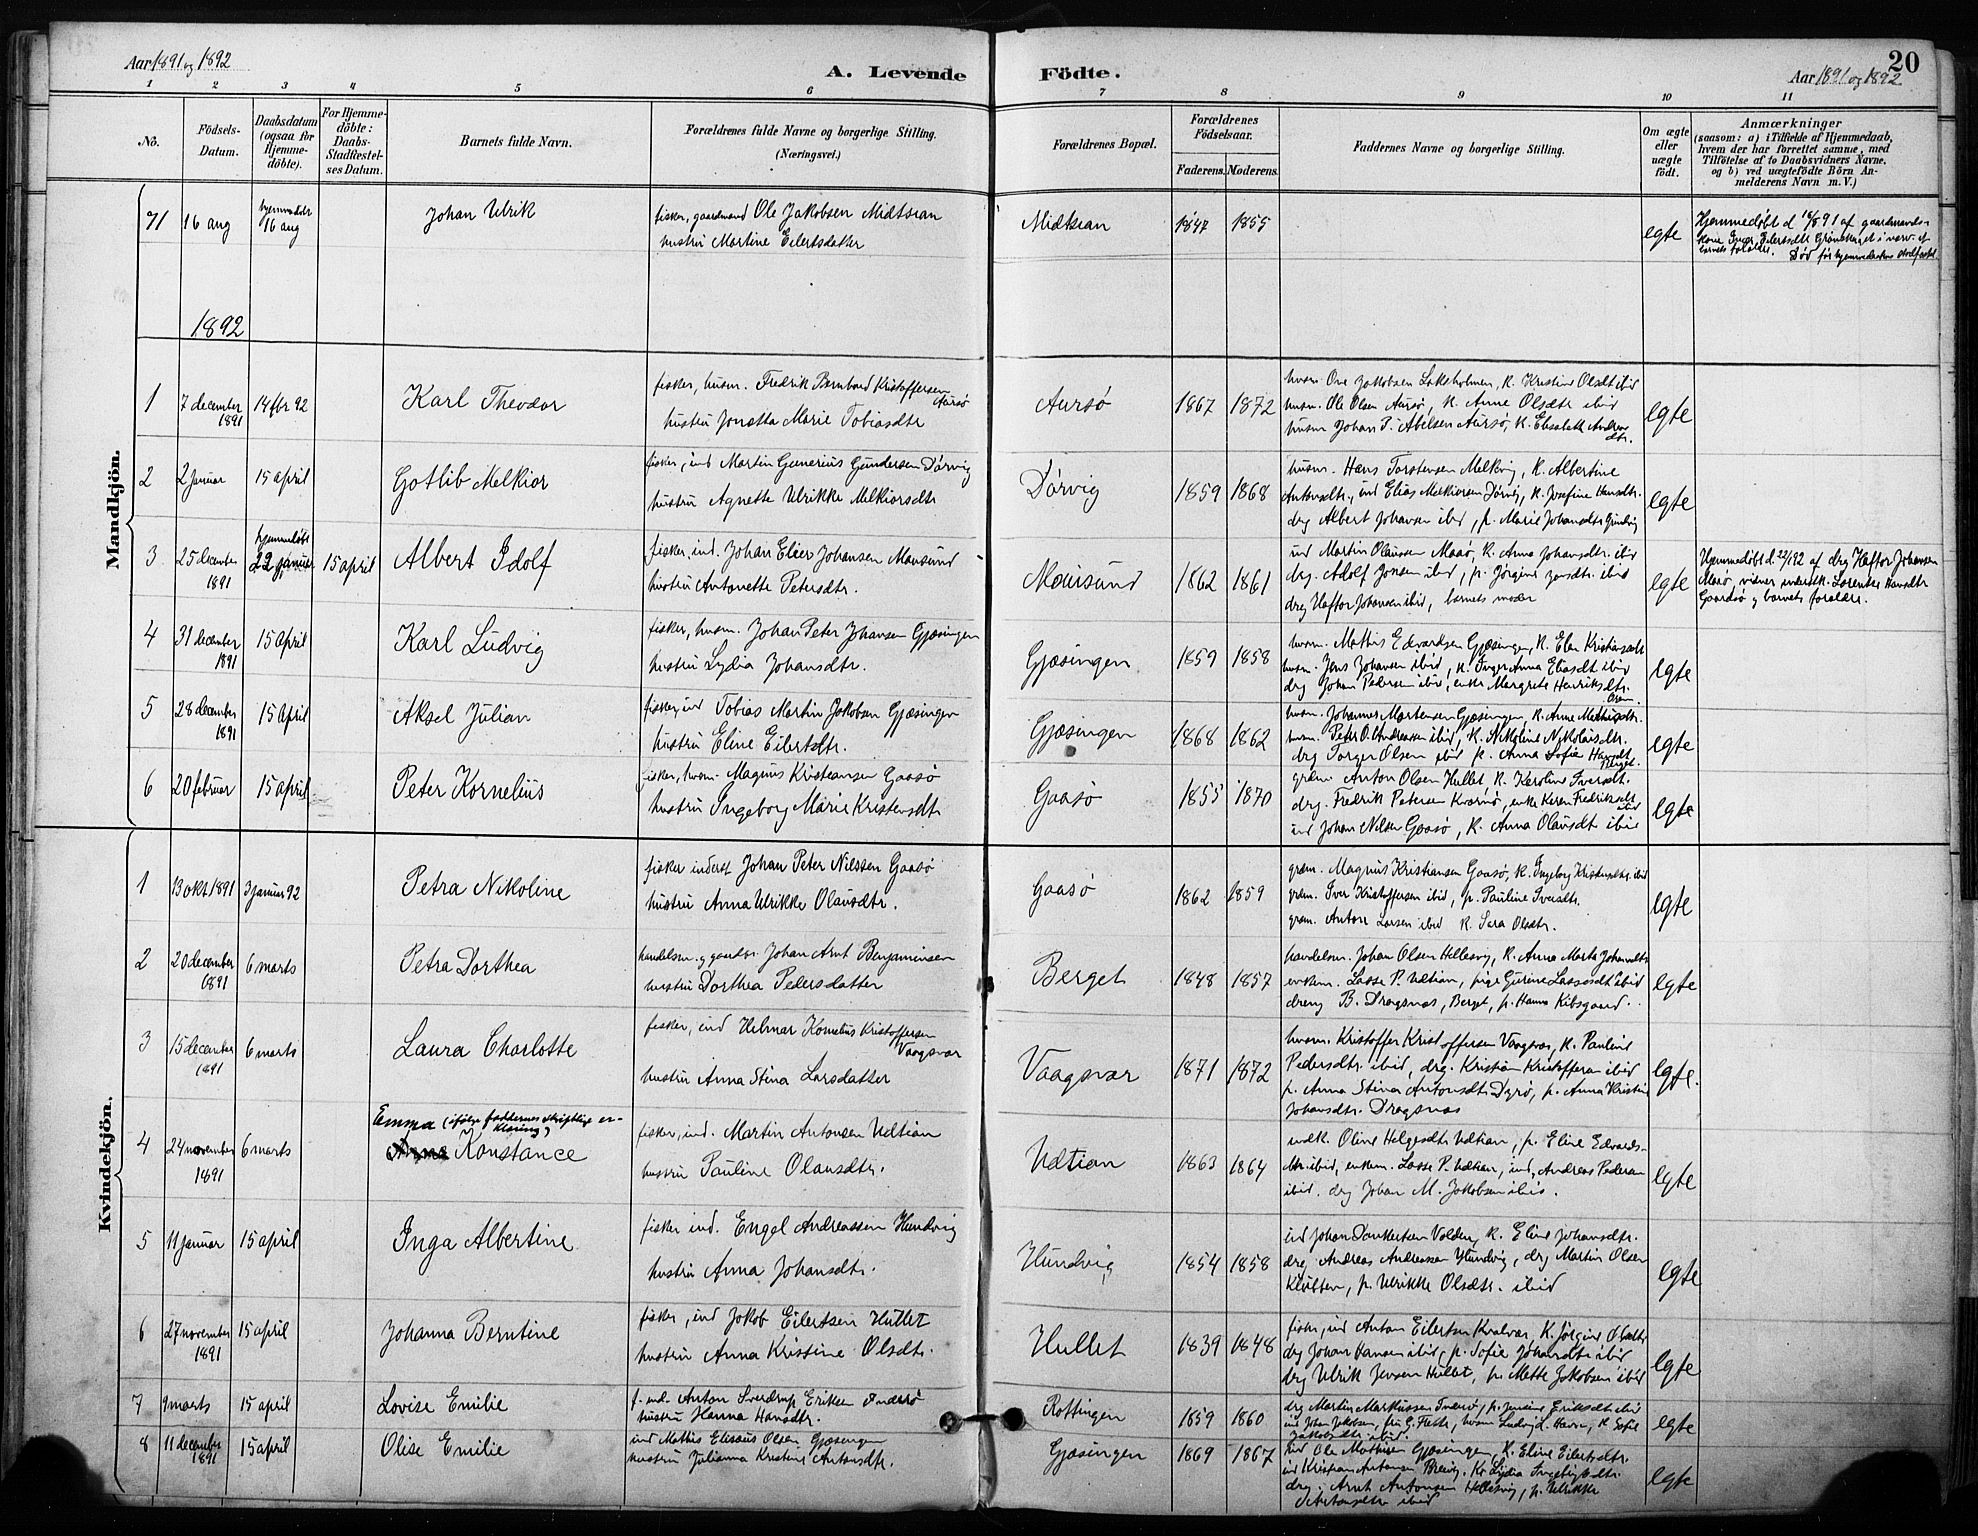 Aar 1891 og 1892
A. Levende Födte.
Aar 1891 og 1892
20
1 2 3 4 5 6 7 8 9 10 11
No.
Födsels-Datum.
Daabsdatum (ogsaa for Hjemme-döbte).
For Hjemme-döbte: Daabs-Stadfæstel-ses Datum.
Barnets fulde Navn.
Forældrenes fulde Navne og borgerlige Stilling. (Næringsvei.)
Forældrenes Bopæl.
Forældrenes Födselsaar.
Faderens. Moderens.
Faddernes Navne og borgerlige Stilling.
Om ægte eller uægte födt.
Anmærkninger
(saasom: a) i Tilfælde af Hjemmedaab, hvem der har forrettet samme, med Tilföielse af to Daabsvidners Navne, og b) ved uægtefödte Börn An-melderens Navn m. V.)
Mandkjön.
71 16 aug hjemmedøbt 16 aug Johan Ulrik fisker, gaardmand Ole Jakobsen Midtsian
hustru Martine Eilertsdatter
Midtsian 1847 1855 egte
Hjemmedøbt d 16/8 91 af gaardmands-
1892
1 7 december 1891 14 fbr 92 Karl Theodor
fisker, husm. Fredrik Bernhard Kristoffersen Aursø
hustru Jonetta Marie Tobiasdtr
Aursø 1867 1872
husm Ove Jakobsen Laksholmen, k. Kristine Olsdt ibid
husm. Ole Olsen Aursø, k. Anne Olsdtr ibid
husm Johan P. Abelsen Aursø, k. Elisabeth Andreas dtr.
egte
2 2 januar 15 april Gotlib Melkior
fisker, ind Martin Gunerius Gundersen Dørvig
hustru Agnette Ulrikke Melkiorsdtr
Dørvig 1859 1868
husm. Hans Torstensen Melkvig, k. Albertine
Antonsdtr., ind Elias Melkiorsen Dørvig, k. Josefine Hansdtr.
drg Albert Johansen ibid, p. Marie Johansdtr
egte
3 25 december 1891 hjemmedøbt 22 januar 15 april Albert Idolf
fisker, ind. Johan Elier Johansen Mausund
hustru Antonette Petersdtr.
Mausund 1862 1861
ind Martin Olaussen Maasø, k. Anna Johansdtr. ibid
drg. Adolf Jonsen ibid, p. Jørgine
drg Haftor Johansen ibid, barnets moder
egte
Hjemmedøbt d. 22/1 92 af drg Haftor Johansen
Maasø, vidner Lorentse Hansdtr
Gaardsø og barnets forældre.
4 31 december 1891 15 april Karl Ludvig
fisker, husm. Johan Peter Johansen Gjæsingen
hustru Lydia Johansdtr.
Gjæsingen 1859 1858
husm. Mathis Edvardsen Gjæsingen, k. Elen Kristiansdt
husm. Jens Johansen ibid, k. Inger Anna Eliasdt ibid
drg Johan Pedersen ibid, enke Margrete Henriksdtr.
egte
5 28 december 1891 15 april Aksel Julian
fisker, ind Tobias Martin Jakobsen Gjæsingen
hustru Eline Eilertsdtr.
Gjæsingen 1868 1862
husm. Johannes Mortensen Gjæsingen, k. Anne Mathisdtr.
husm. Peter O. Andreassen ibid, k. Nikoline Nikolaisdtr.
drg Torger Olsen ibid p. Anna Sofie Hansdt
egte
6 20 februar 15 april Peter Kornelius
fisker, husm. Magnus Kristiansen Gaasø
hustru Ingeborg Marie Kristensdt
Gaasø 1855 1870
græm. Anton Olsen Hullet k. Karoline Iversdt.
drg. Fredrik Petersen Kværnø, enke Karen Fredriksdt ibid
ind Johan Nilsen Gaasø, k. Anna Olausdt ibid
egte
Kvindekjön.
1 13 okt 1891 3 januar 92 Petra Nikoline
fisker inderst Johan Peter Nilssen Gaasø
hustru Anna Ulrikke Olausdtr.
Gaasø 1862 1859
græm. Magnus Kristiansen Gaasø, k. Ingeborg Kristensdtr. ibid
græm. Iver Kristoffersen ibid, p. Pauline Iversdtr.
græm. Anton Larsen ibid k. Sara Olsdtr.
egte
2 20 december 1891 6 marts Petra Dorthea
handelsm. og gaardbr. Johan Arnt Benjaminsen
hustru Dorthea Pedersdatter
Berget 1848 1857
handelsm. Johan Olsen Hellesvig, k. Anna Marta Johansdtr
enkem. Lasse P. Udtian, pige Gurine Lassesdt ibid
dreng B. Dragsnæs, Berget, p. Hanna Kibsgaard.
egte
3 15 december 1891 6 marts Laura Charlotte
fisker, ind Hilmar Kornelius Kristoffersen Vaagsvær
hustru Anna Stina Larsdatter
Vaagsvær 1871 1872
husm. Kristoffer Kristoffersen Vaagsvær, k. Pauline
Pedersdtr. ibid, drg. Kristian Kristoffersen ibid
p. Anna Stina Antonsdtr Dyrø, p. Anna Kristine
Johansdtr. Dragsnæs
egte.
4 24 november 1891 6 marts Emma (ifølge faddernes skriftlige er-klæring)
Anna Konstance
fisker, ind. Martin Antonsen Udtian
hustru Pauline Olausdtr.
Udtian 1863 1864
indk. Oline Helgesdtr Udtian, p. Eline Edvards-
dtr. ibid, enkem. Lasse P. Udtian, ind. Andreas Pedersen
ibid. drg Johan M. Jakobsen ibid.
egte
5 11 januar 15 april Inga Albertine
fisker ind. Engel Andreassen Hundvig
hustru Anna Johansdtr.
Hundvig 1854 1858
ind Johan Dankertsen Valden, k. Eline Johansdtr.
drg. Andreas Andreassen Hundvig, drg Martin Olsen
Kløften, p. Ulrikke Olsdtr. ibid
egte
6 27 november 1891 15 april Johanna Berntine
fisker, ind Jakob Eilertsen Hullet
hustru Anna Kristine Olsdtr.
Hullet 1839 1848
fisker, ind Anton Eilertsen Kvalvær, k. Jørgine Olsdtr
drg Johan Hansen ibid, p. Sofie Johansdtr ibid
drg Ulrik Jensen Hullet, p. Mette Jakobsen ibid
egte
7 9 marts 15 april Lovise Emilie
f. ind. Anton Sverdrup Eriksen
hustru Hanna Hansdtr.
Rottingen 1859 1860
drg Martin Markussen
egte
8 11 december 1891 15 april Olise Emilie
ind Mathis Eliseus Olsen Gjæsingen
hustru Julianna Kristine Antonsdtr.
Gjæsingen 1869 1867
ind Ole Mathisen Gjæsingen, k. Eline Eilertsdtr.
drg. Arnt Antonsen Hellesvig, p. Ulrikke
Antonsdtr ibid
egte